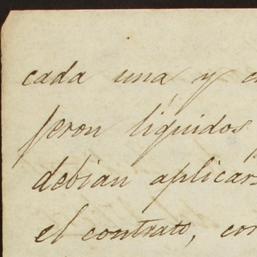 cada una y
líquidos
debían aplicar
el contrato, con